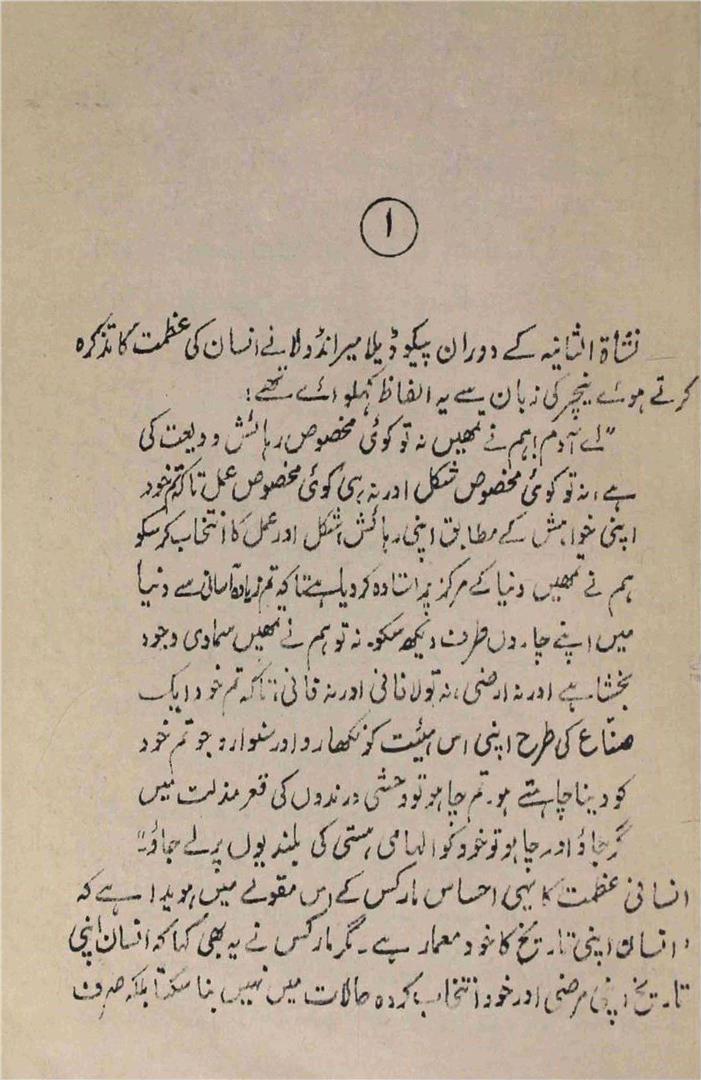 ۱
نشاۃ الثانیہ کے دوران پیکو ڈیلا میرانڈولا نے انسان کی عظمت کا تذکرہ
کرتے ہوئے نیچر کی زبان سے یہ الفاظ کہلوائے تھے:
"اے آدم! ہم نے تمھیں نہ تو کوئی مخصوص رہائش ودیعت کی
ہے، نہ تو کوئی مخصوص شکل اور نہ ہی کوئی مخصوص عمل تاکہ تم خود
اپنی خواہش کے مطابق اپنی رہائش، شکل اور عمل کا انتخاب کر سکو
ہم نے تمھیں دنیا کے مرکز پر استادہ کر دیا ہے تاکہ تم زیادہ آسانی سے دنیا
میں اپنے چاروں طرف دیکھ سکو۔ نہ تو ہم نے تمھیں سماوی وجود
بخشا ہے اور نہ ارضی، نہ تو لافانی اور نہ فانی، تاکہ تم خود ایک
صنّاع کی طرح اپنی اس ہیئت کو نکھارو اور سنوارو جو تم خود
کو دینا چاہتے ہو۔ تم چاہو تو وحشی درندوں کی قعر مذلت میں
گر جاؤ اور چاہو تو خود کو الہامی ہستی کی بلندیوں پر لے جاؤ۔"
انسانی عظمت کا یہی احساس مارکس کے اس مقولے میں ہویدا ہے کہ
'انسان اپنی تاریخ کا خود معمار ہے۔ مگر مارکس نے یہ بھی کہا کہ انسان اپنی
تاریخ اپنی مرضی اور خود انتخاب کردہ حالات میں نہیں بنا سکتا بلکہ صرف